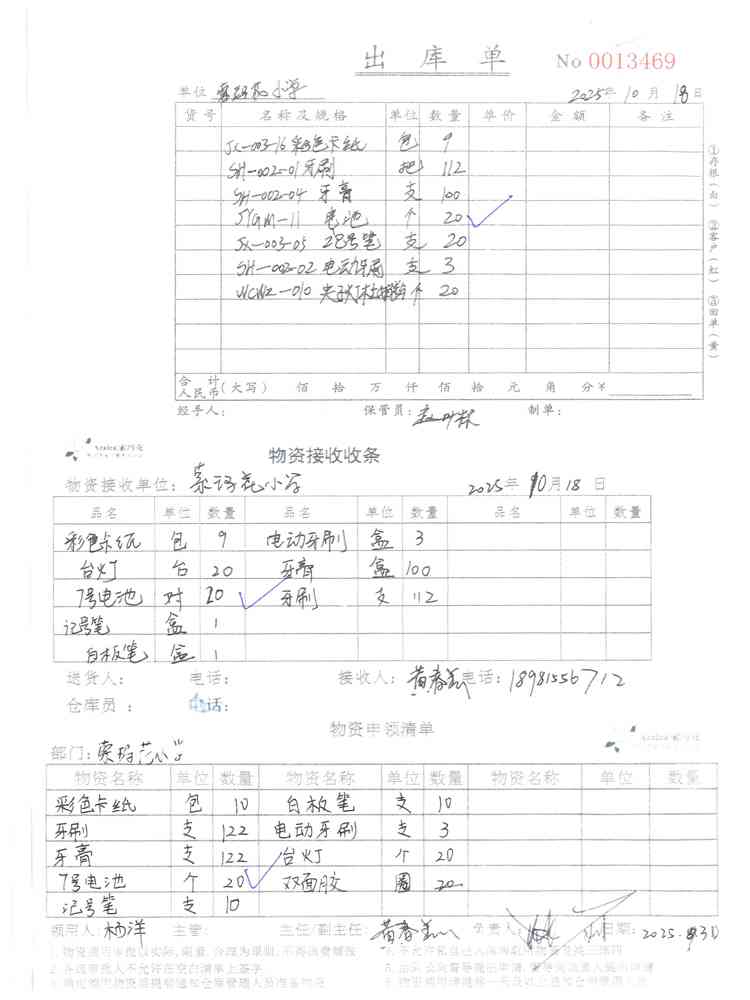 出库单 No 0013469
单位 索玛花小学 2025年10月18日
货号 名称及规格 单位 数量 单价 金额 备注
JX-003-16 彩色卡纸 包 9
SH-002-01 牙刷 把 112
SH-002-04 牙膏 支 100
JYGM-11 电池 个 20
JX-003-05 记号笔 支 20
SH-002-02 电动牙刷 支 3
WCWZ-010 个 20
①存根(白) ②客户(红) ③回单(黄)
合计人民币(大写) 佰 拾 万 仟 佰 拾 元 角 分 ¥
经手人: 保管员: 制单:
物资接收收条
物资接收单位: 索玛花小学 2025年10月18日
品名 单位 数量 品名 单位 数量 品名 单位 数量
彩色卡纸 包 9 电动牙刷 盒 3
台灯 台 20 牙膏 盒 100
7号电池 对 20 牙刷 支 112
记号笔 盒 1
白板笔 盒 1
送货人: 电话: 接收人: 黄春 电话: 18981556712
仓库员: 电话:
物资申领清单
部门: 索玛花小学
物资名称 单位 数量 物资名称 单位 数量 物资名称 单位 数量
彩色卡纸 包 10 白板笔 支 10
牙刷 支 122 电动牙刷 支 3
牙膏 支 122 台灯 个 20
7号电池 个 20 双面胶 圈 20
记号笔 支 10
领用人: 杨洋 主管: 主任/副主任: 黄春 负责人: 日期: 2025.